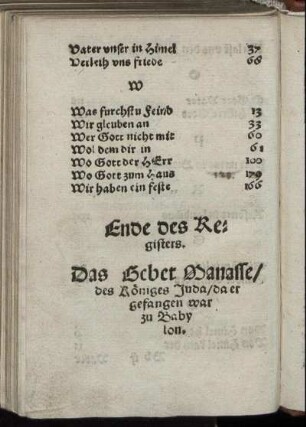 Vater vnser in Himel 37
Verleih vns friede 68
W
Was furchstu Feind 13
Wir gleuben an 33
Wer Gott nicht mit 60
Wol dem dir in 61
Wo Gott der HErr 100
Wo Gott zum Haus
Wir haben ein feste 166
Ende des Re-
gisters.
Das Gebet Manasse/
des Königes Juda/da er
gefangen war
zu Baby
lon.